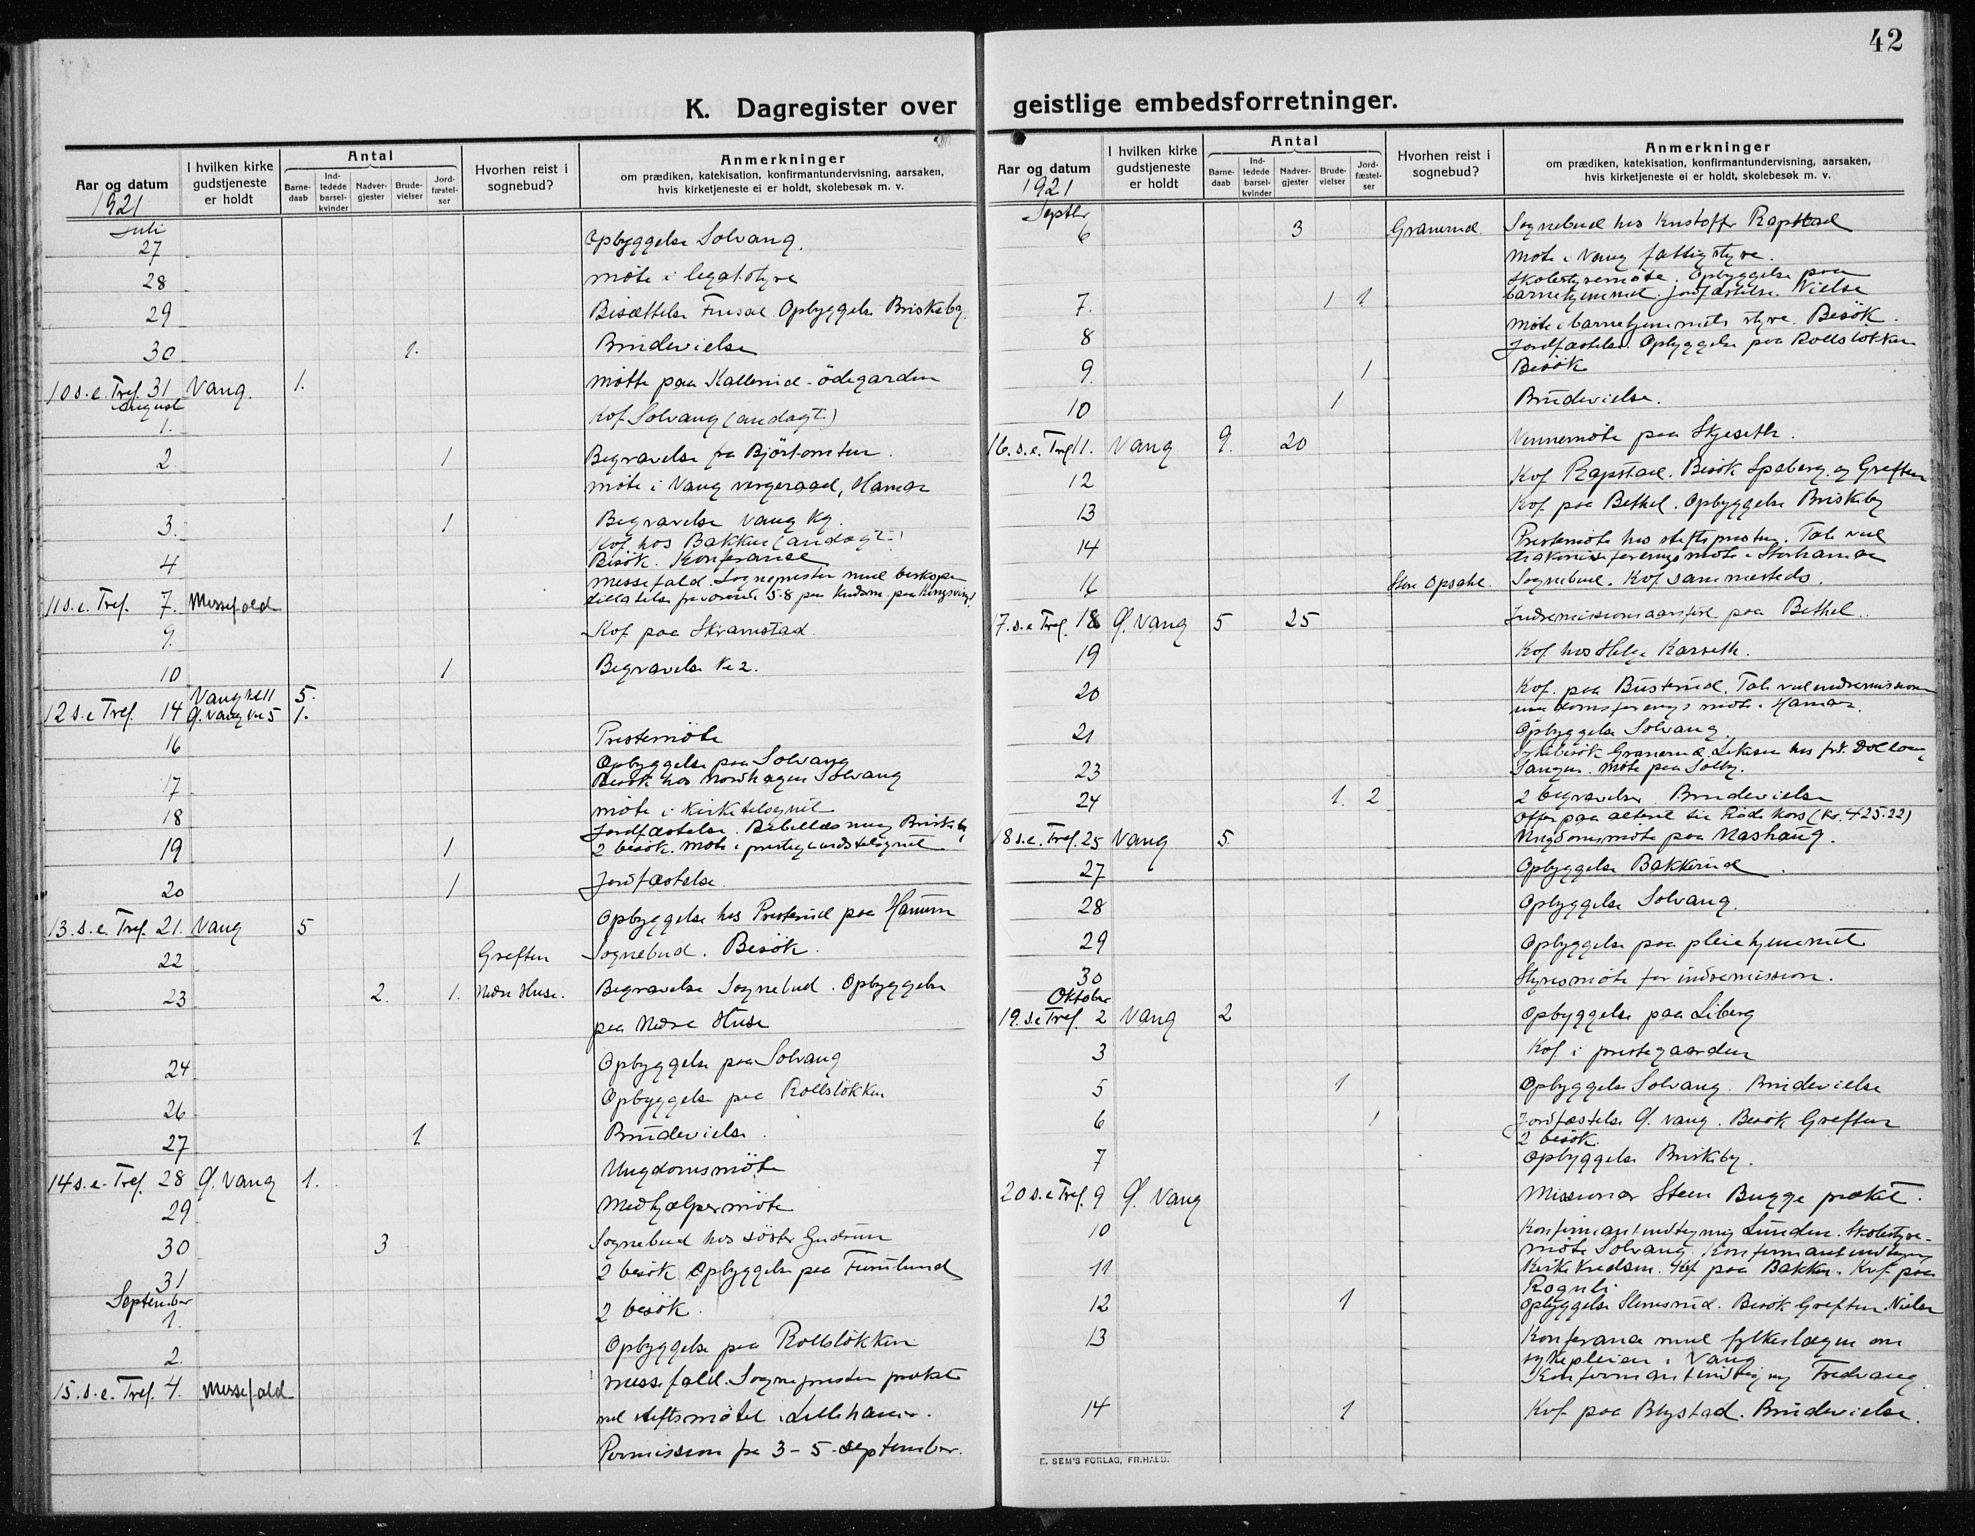 42
K. Dagregister over geistlige embedsforretninger.
Aar og datum
I hvilken kirke gudstjeneste er holdt
Antal
Barnedaab
Indledede barselkvinder
Nadvergjester
Brudevielser
Jordfæstelser
Hvorhen reist i sognebud?
Anmerkninger
om prædiken, katekisation, konfirmantundervisning, aarsaken,
hvis kirketjeneste ei er holdt, skolebesøk m. v.
1921
Juli
27 Opbyggelse Solvang.
28 Møte i legatstyre
29 Bisættelse Furusæt. Opbyggelse Briskeby.
30 1. Brudevielse
10 s.e. Tref. 31 Vang. 1. Møtte paa Kallerud-ødegarden
August
1. Kof. Solvang (andagt.)
2 1 Begravelse fra
Møte i Vang vergeraad, Hamar
3. 1 Begravelse Vang Kg.
Kof. hos Bakken (andagt.)
4 Besøk. Konferance
Messefald. Sogneprester med
11 s.e. Tref. 7. Messefald
9. Kof paa Skramstad.
10 1 Begravelse Kl 2.
Vang kl 11 5.
12 s.e Tref. 14 Ø. Vang kl 5 1.
16 Prestemøte
Opbyggelse paa Solvang
17 Besøk hos Nordhagen Solvang
18 Møte i Kirketilsynet
Jordfæstelse. Bibellæsning Briskeby
19 1 2 besøk. Møte i prestegaardstilsynet
20 1 Jordfæstelse.
13. s.e. Tref. 21. Vang 5 Opbyggelse hos Presterud paa
22 Greften Sognebud. Besøk.
23 2. 1. Nedre Huse. Begravelse Sognebud. Opbyggelse
paa Nedre Huse
24 Opbyggelse paa Solvang
26 Opbyggelse paa Rollsløkken
27 1 Brudevielse.
14 s.e. Tref. 28 Ø. Vang 1. Ungdomsmøte
29 Medhjælpermøte
30 3 Sognebud hos søster Gudrun
31 2 besøk Opbyggelse paa Furulund
September
1. 2 besøk.
2. Opbyggelse paa Rollsløkken
15. s.e. Tref. 4. Messefald Messefald. Sogneprester prækte
ved stiftsmøtet i Lillehamer.
Permission fra 3-5 september.
Aar og datum
I hvilken kirke gudstjeneste er holdt
Antal
Barnedaab
Indledede barselkvinder
Nadvergjester
Brudevielser
Jordfæstelser
Hvorhen reist i sognebud?
Anmerkninger
om prædiken, katekisation, konfirmantundervisning, aarsaken,
hvis kirketjeneste ei er holdt, skolebesøk m. v.
1921
Septbr
6 3 Granerud. Sognebud hos Kristoffer Rapstad
Møte i Vang fattigstyre.
Skolestyremøte. Opbyggelse paa
7. 1 1 barnehjemmet. Jordfæstelse. Vielse
8 Møte i barnehjemmets styre. Besøk.
Jordfæstelse. Opbyggelse paa Rollsløkken
9. 1 Besøk
10 1 Brudevielse.
16. s.e. Tref 11. Vang 9. 20 Vennemøte paa Skjeseth.
12 Kof Rapstad. Besøk Spaberg. og Greften
13 Kof. paa Bethel. Opbyggelse Briskeby
14 Prestemøte hos stiftsprosten. Tale ved
diakonisseforeningsmøte i Storhamar
16 Store Opsahl. Sognebud. Kof sammesteds.
17. s.e Tref. 18 Ø. Vang 5 25 Indremissionsaarsfest paa Bethel.
19 Kof. hos Helge Karseth.
20 Kof. paa Busterud. Tale ved indremissionens
møte i Hamar.
21 Opbyggelse Solvang.
Sykebesøk Granerud.
23 Møte paa Solby.
24 1. 2 2 begravelser. Brudevielse
Offer paa alteret til Røde Kors (kr. 425.22)
18 s.e. Tref. 25 Vang 5. Ungdomsmøte paa Nashaug.
27 Opbyggelse Bakkerud.
28 Opbyggelse Solvang.
29 Opbyggelse paa pleiehjemmet
30 Styresmøte for indremission.
Oktober
19. s.e Tref. 2 Vang 2 Opbyggelse paa Liberg
3 Kof. i prestegaarden
5 1 Opbyggelse Solvang. Brudevielse
6 1 Jordfæstelse Ø. Vang. Besøk Greften
2 besøk.
7 Opbyggelse Briskeby.
20 s.e Tref. 9 Ø. Vang Missionær Steen Bugge prækte.
10 Konfirmantindtegning Lunden. Skolestyre-
møte Solvang. Konfirmantindtegning
11 Kof paa Bakken. Kof. paa
Roguli
12 1 Opbyggelse Slemsrud. Besøk Greften. Vielse
13 Konferance med fylkeslægen om
sykepleien i Vang
Konfirmantindtegning Fredvang
14 1 Kof. paa Blystad. Brudevielse.
E. SEM'S FORLAG, FR.HALD.